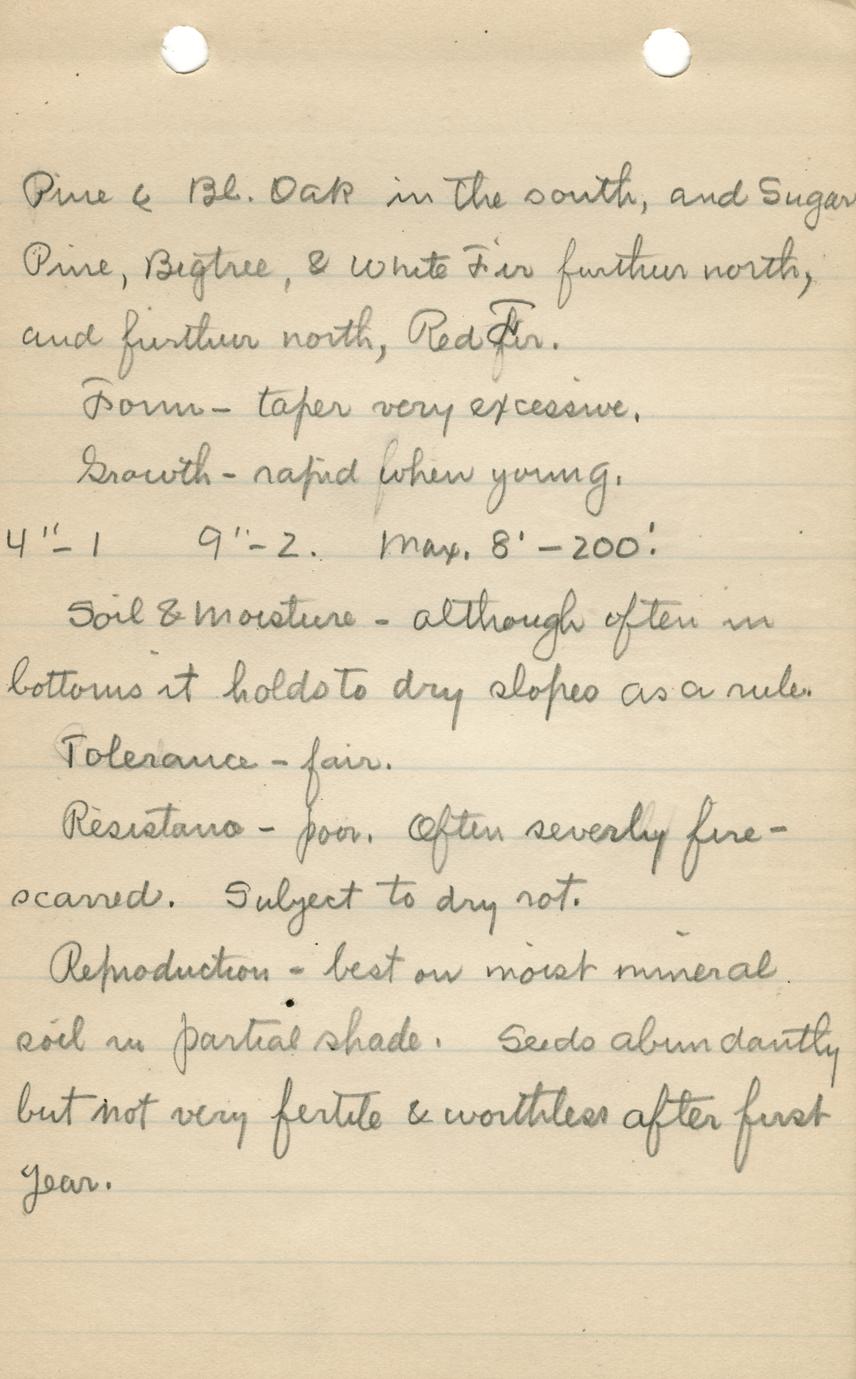 Pine & Bl. Oak in the south, and Sugar
Pine, Bigtree, & White Fir further north,
and further north, Red Fir.
Form - taper very excessive.
Growth - rapid when young.
4"- 1 9"- 2. Max. 8' - 200'.
Soil & Moisture - although often in
bottoms it holds to dry slopes as a rule.
Tolerance - fair.
Resistance - poor. Often severly fire-
scarred. Subject to dry rot.
Reproduction - best on moist mineral
soil in partial shade. Seeds abundantly
but not very fertile & worthless after first
year.